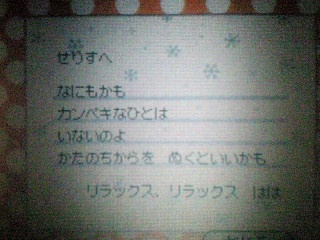 せりすへ
なにもかも
カンペキなひとは
いないのよ
かたのちからを ぬくといいかも
リラックス、リラックス はは